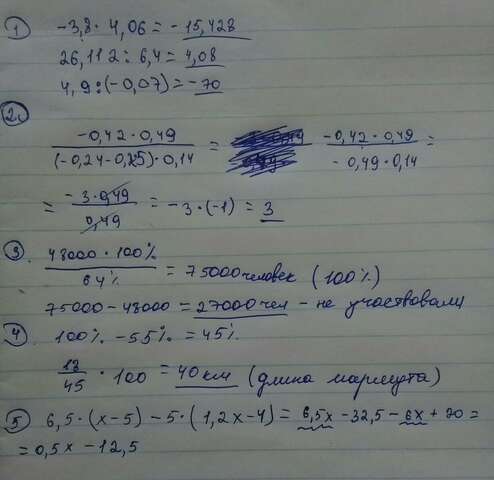 1 -3,8 · 4,06 = -15,428
26,112 : 6,4 = 4,08
4,9 : (-0,07) = -70
2.
-0,42 · 0,49 / (-0,24-0,25) · 0,14 = -0,42 · 0,49 / -0,49 · 0,14 =
= -3 · 0,49 / 0,49 = -3 · (-1) = 3
3. 48000 · 100% / 64% = 75000 человек (100%)
75000 - 48000 = 27000 чел - не участвовали
4 100% - 55% = 45%
18/45 · 100 = 40 км (длина маршрута)
5 6,5 · (x-5) - 5 · (1,2x-4) = 6,5x - 32,5 - 6x + 20 =
= 0,5x - 12,5